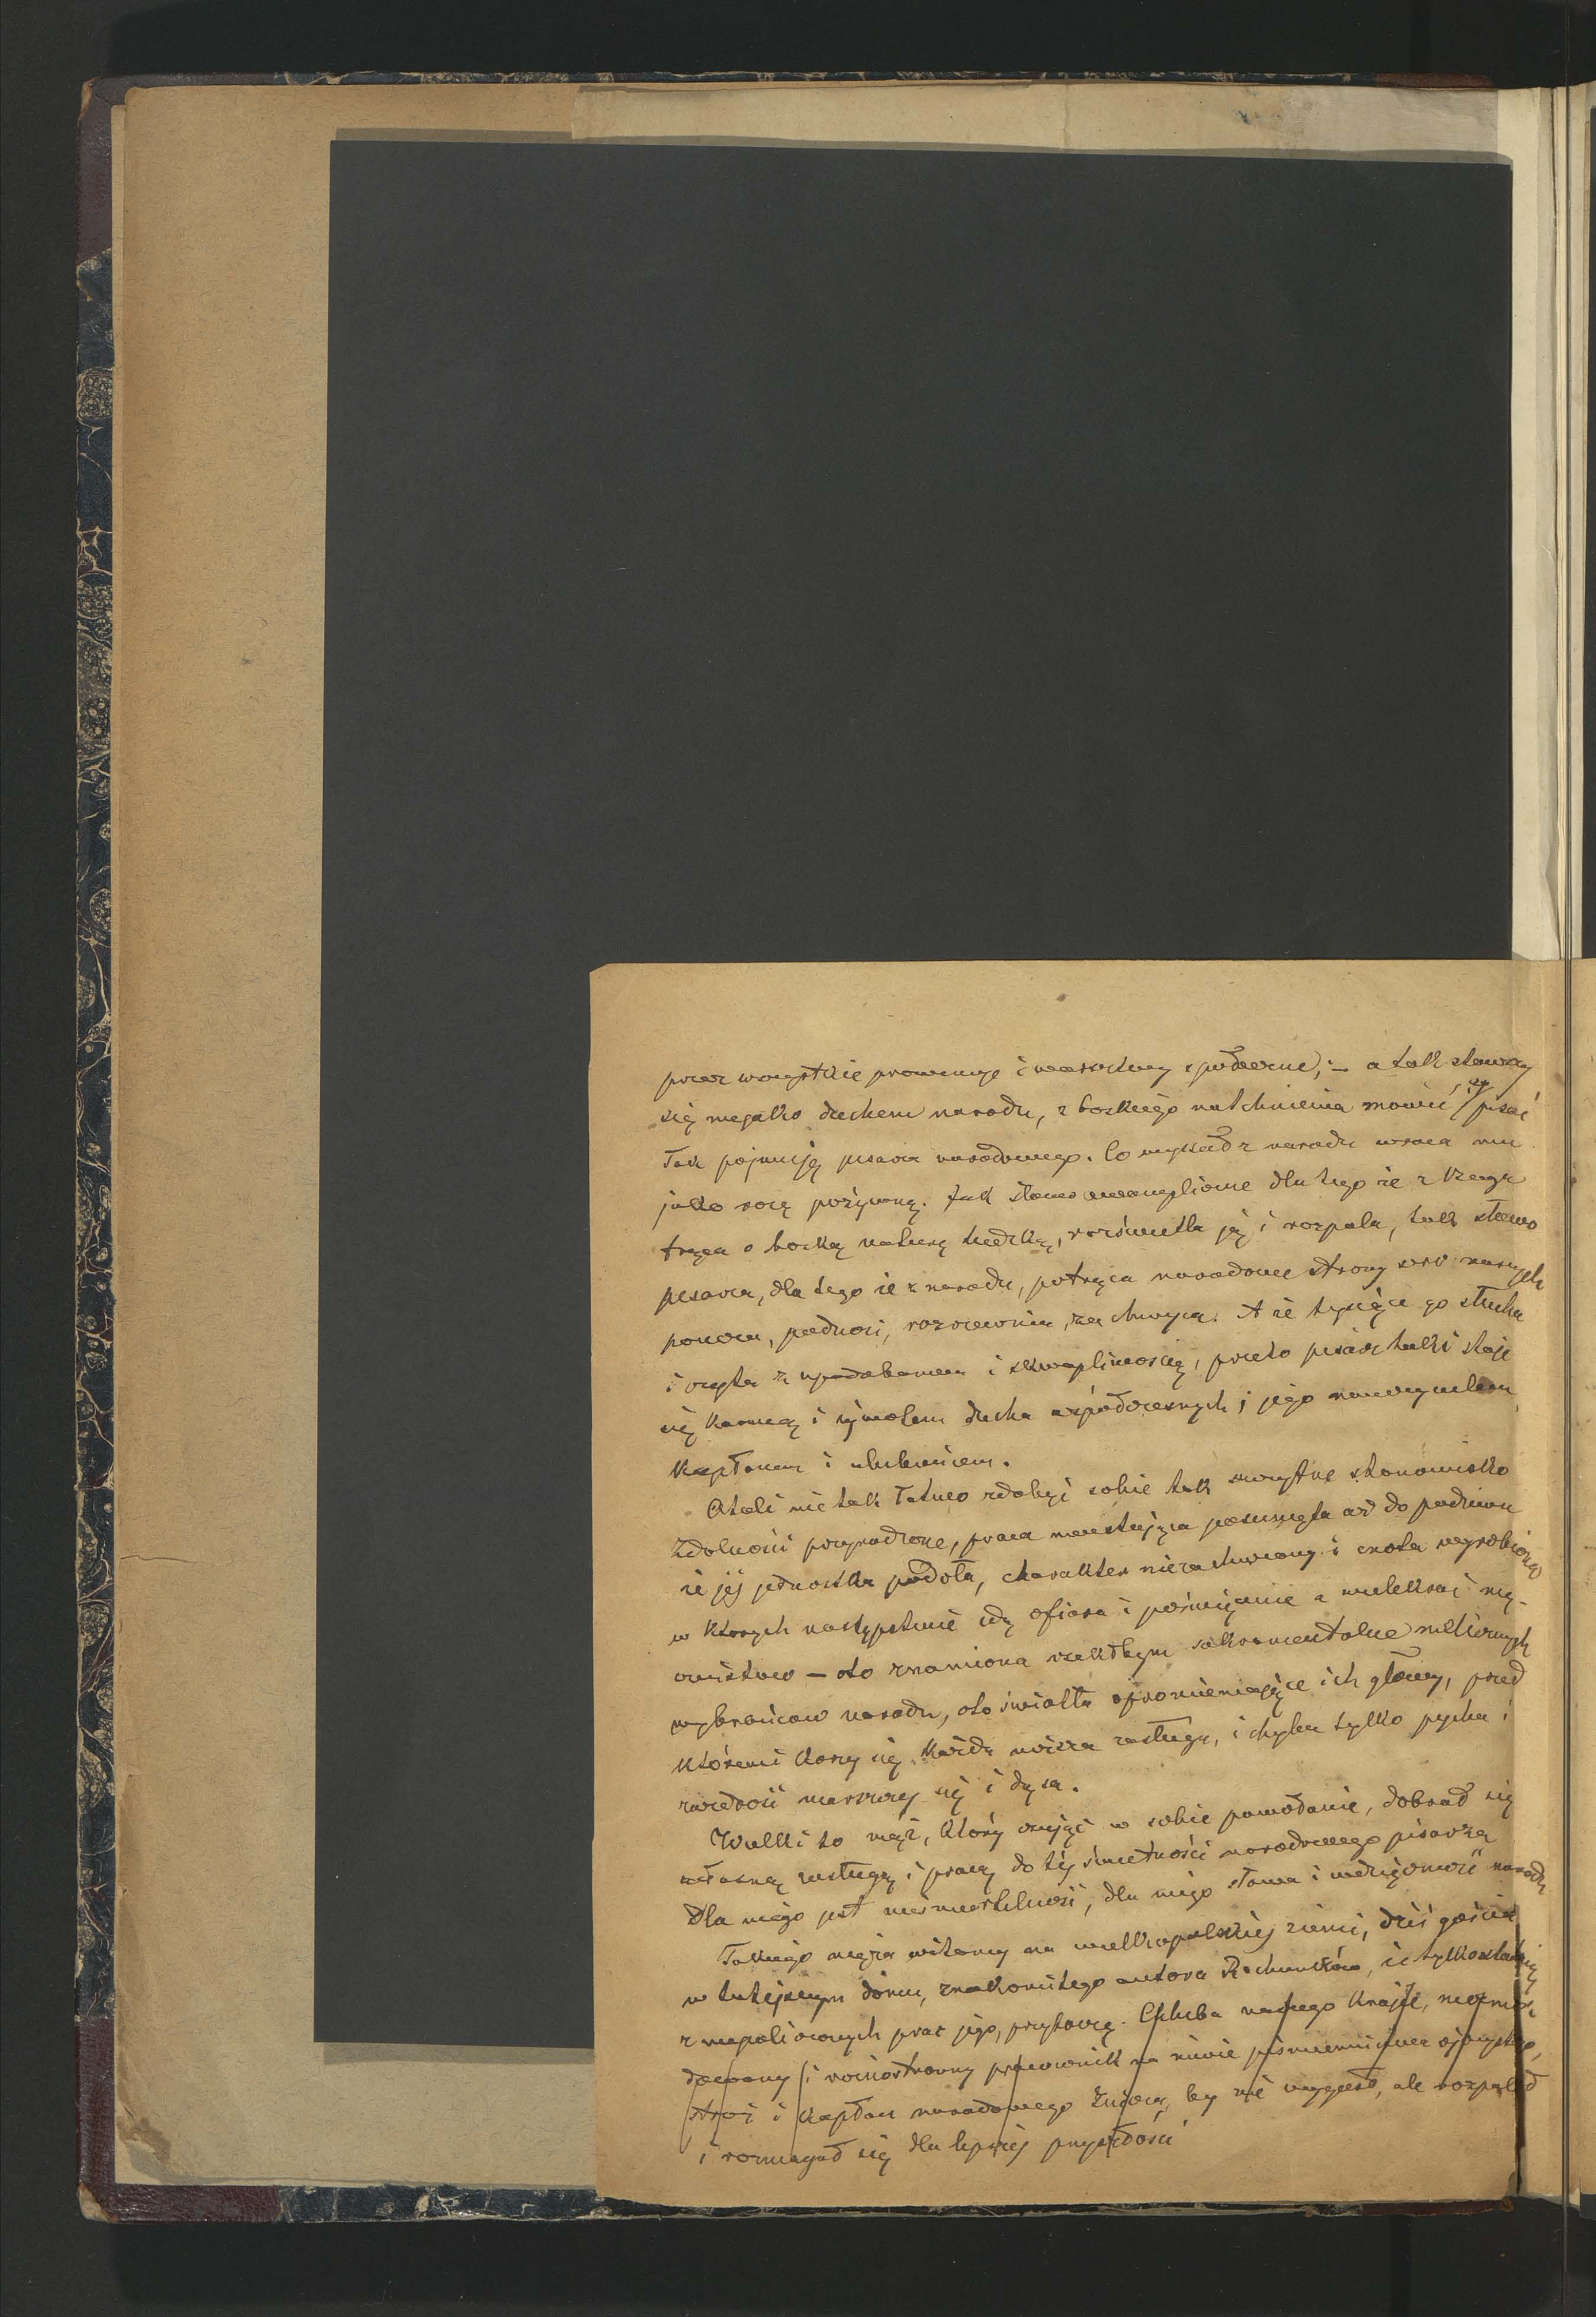 przez wszystkie prowincye i warstwy społeczne; – a tak stawszy
się niejako duchem narodu, z boskiego natchnienia mówić i pisać
Tak pojmuję pisarza narodowego. Co wyssał z narodu wraca mu
jako rosę pożywną. Jak słowo ewangeliczne dla tego że z Księga
trąca o boską naturę ludzką, rozświetla ją i rozpala, tak słowo
pisarza, dla tego że z narodu, potrąca narodowe strony serc naszych
porusza, podnosi, rozrzewnia, zachwyca. A że tysiące go słucha
i czyta z upodobaniem i skwapliwością, przeto pisarz taki staje
się karmą i symbolem ducha współczesnych; jego nauczycielem
kapłanem i ulubieńcem.
Atoli nie tak łatwo zdobyć sobie tak zaszczytne stanowisko
Zdolności przyrodzone, praca nieustająca posunięta aż do podziwu
że jej jednostka podoła, charakter niezachwiany i cnota wyrobiona
w których następstwie idą ofiara i poświęcenie a niekiedy i mę-
czeństwo – oto znamiona rzekłbym sakramentalne nielicznych
wybrańców narodu, oto światła opromieniające ich głowy, przed
któremi korzy się każda niższa zasługa, i chyba tylko pycha i
zazdrość marszczy się i dąsa.
Wielki to mąż, który czując w sobie powołanie, dobrał się
własną zasługą i pracą do tej świetności narodowego pisarza
Dla niego jest nieśmiertelność, dla niego sława i wdzięczność narodu
Takiego męża witamy na wielkopolskiej ziemi, dziś gościa
w tutejszym domu, znakomitego autora Rachunków, że tylko ostatnią
z niepoliczonych prac jego, przytoczę. Chluba naszego kraju, niezmor-
dowany i wszechstronny pracownik na niwie piśmiennictwa ojczystego,
stróż i kapłan narodowego Znicza, by nie wygasł, ale rozpalał
i rozmagał się dla lepszej przyszłości